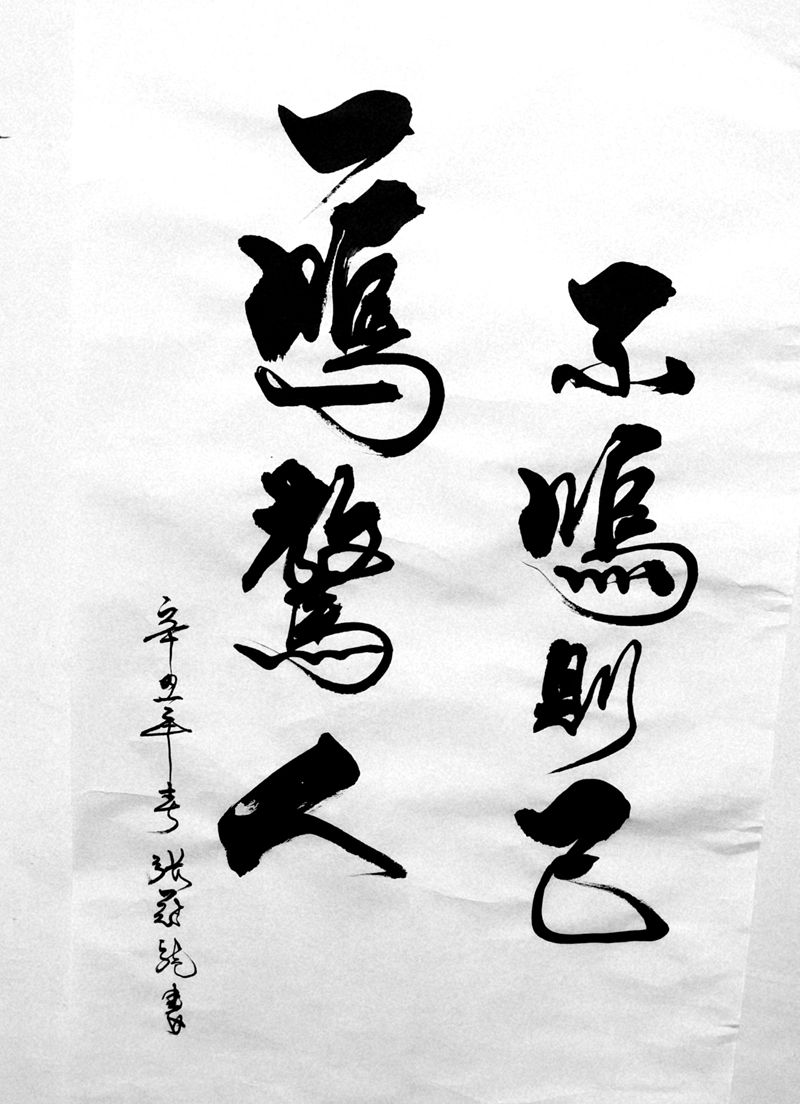 不鳴則已
一鳴驚人
辛丑年春 張冠龍書